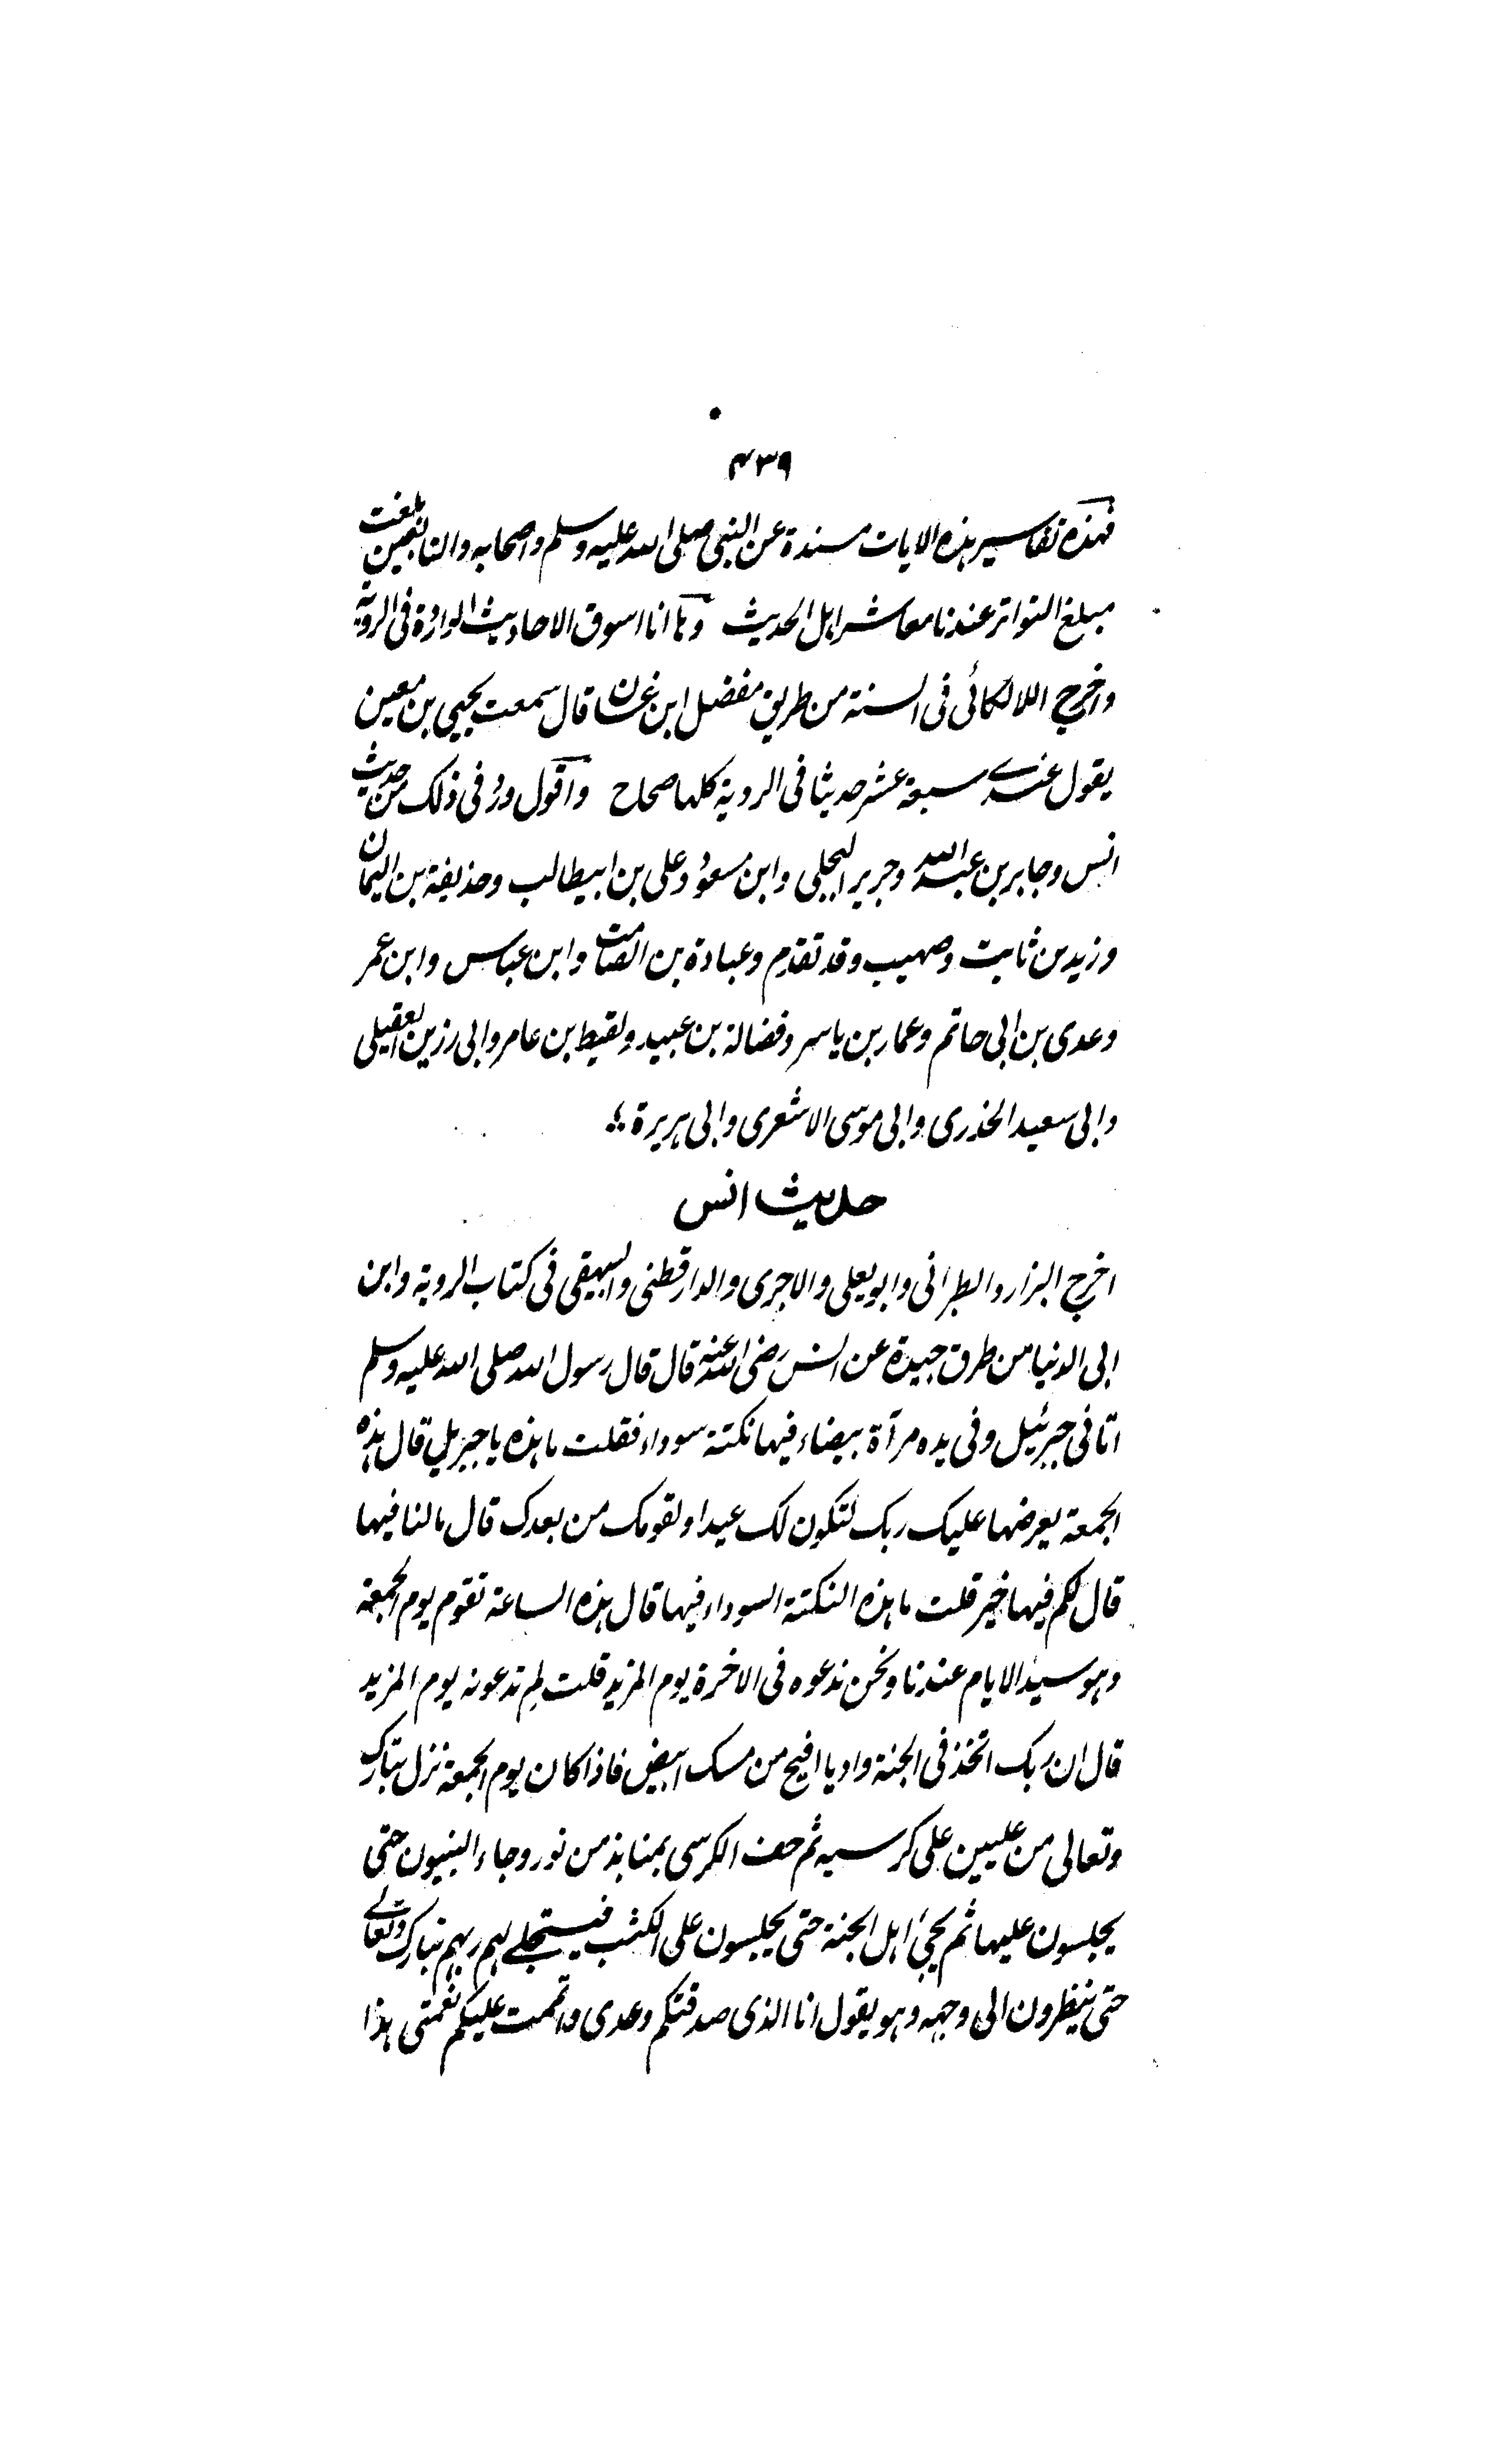 ۴۳۹
فهذه تفاسیر هذه الایات مسندة عن النبی صلی الله علیه وسلم واصحابه والتابعین بلغت
مبلغ التواتر عندنا معاشر اهل الحدیث وها انا اسوق الاحادیث الواردة فی الرویة
واخرج اللالکائی فی السنة من طریق مفضل ابن غسان قال سمعت یحیی بن معین
یقول عندی سبعة عشر حدیثا فی الرویة کلها صحاح واقول ورد فی ذلک من حدیث
انس وجابر بن عبدالله وجریر البجلی وابن مسعود وعلی بن ابیطالب وحذیفة بن الیمان
وزید بن ثابت وصهیب وقد تقدم وعبادة بن الصامت وابن عباس وابن عمر
وعدی بن ابی حاتم وعمار بن یاسر وفضالة بن عبید ولقیط بن عامر وابی رزین العقیلی
وابی سعید الخدری وابی موسی الاشعری وابی هریرة
حدیث انس
اخرج البزار والطبرانی وابو یعلی والاجری والدارقطنی والبیهقی فی کتاب الرویة وابن
ابی الدنیا من طرق جیدة عن انس رضی الله عنه قال قال رسول الله صلی الله علیه وسلم
اتانی جبرئیل وفی یده مرآة بیضاء فیها نکتة سوداء فقلت ما هذه یا جبریل قال هذه
الجمعة یعرضها علیک ربک لتکون لک عیدا ولقومک من بعدک قال مالنا فیها
قال لکم فیها خیر قلت ما هذه النکتة السوداء فیها قال هذه الساعة تقوم یوم الجمعة
وهو سید الایام عندنا ونحن ندعوه فی الاخرة یوم المزید قلت لم تدعونه یوم المزید
قال ان ربک اتخذ فی الجنة وادیا افیح من مسک ابیض فاذا کان یوم الجمعة نزل تبارک
وتعالی من علیین علی کرسیه ثم حف الکرسی بمنابذ من نور وجاء النبیون حتی
یجلسون علیها ثم یجئ اهل الجنة حتی یجلسون علی الکثب فیتجلے لهم ربهم تبارک وتعالے
حتی ینظرون الی وجهه وهو یقول انا الذی صدقتکم وعدی واتممت علیکم نعمتی هذا